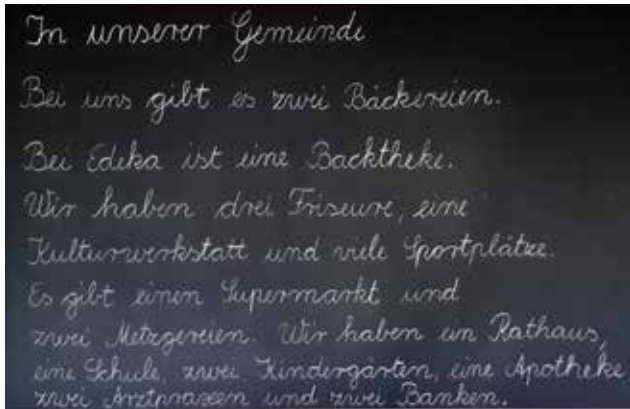 In unserer Gemeinde
Bei uns gibt es zwei Bäckereien.
Bei Edeka ist eine Backtheke.
Wir haben drei Friseure, eine
Kulturwerkstatt und viele Sportplätze.
Es gibt einen Supermarkt und
zwei Metzgereien. Wir haben ein Rathaus,
eine Schule, zwei Kindergärten, eine Apotheke
zwei Arztpraxen und zwei Banken.